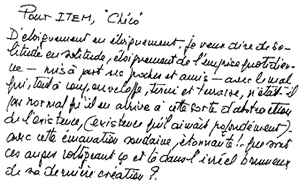 Pour ITEM, "Chico"
D'éloignement en éloignement, je veux dire de so-
litude en solitude, éloignement de l'emprise quotidien-
ne — mis à part ses proches et amis — avec le mal
qui, tout à coup, enveloppe, ternit et terrasse, n'était-il
pas normal qu'il en arrive à cette sorte d'abstraction
de l'existence, (existence qu'il aimait profondément).
avec cette émanation soudaine, étonnante! que sont
ces anges voltigeant çà et là dans l'irréel brumeux
de sa dernière création?